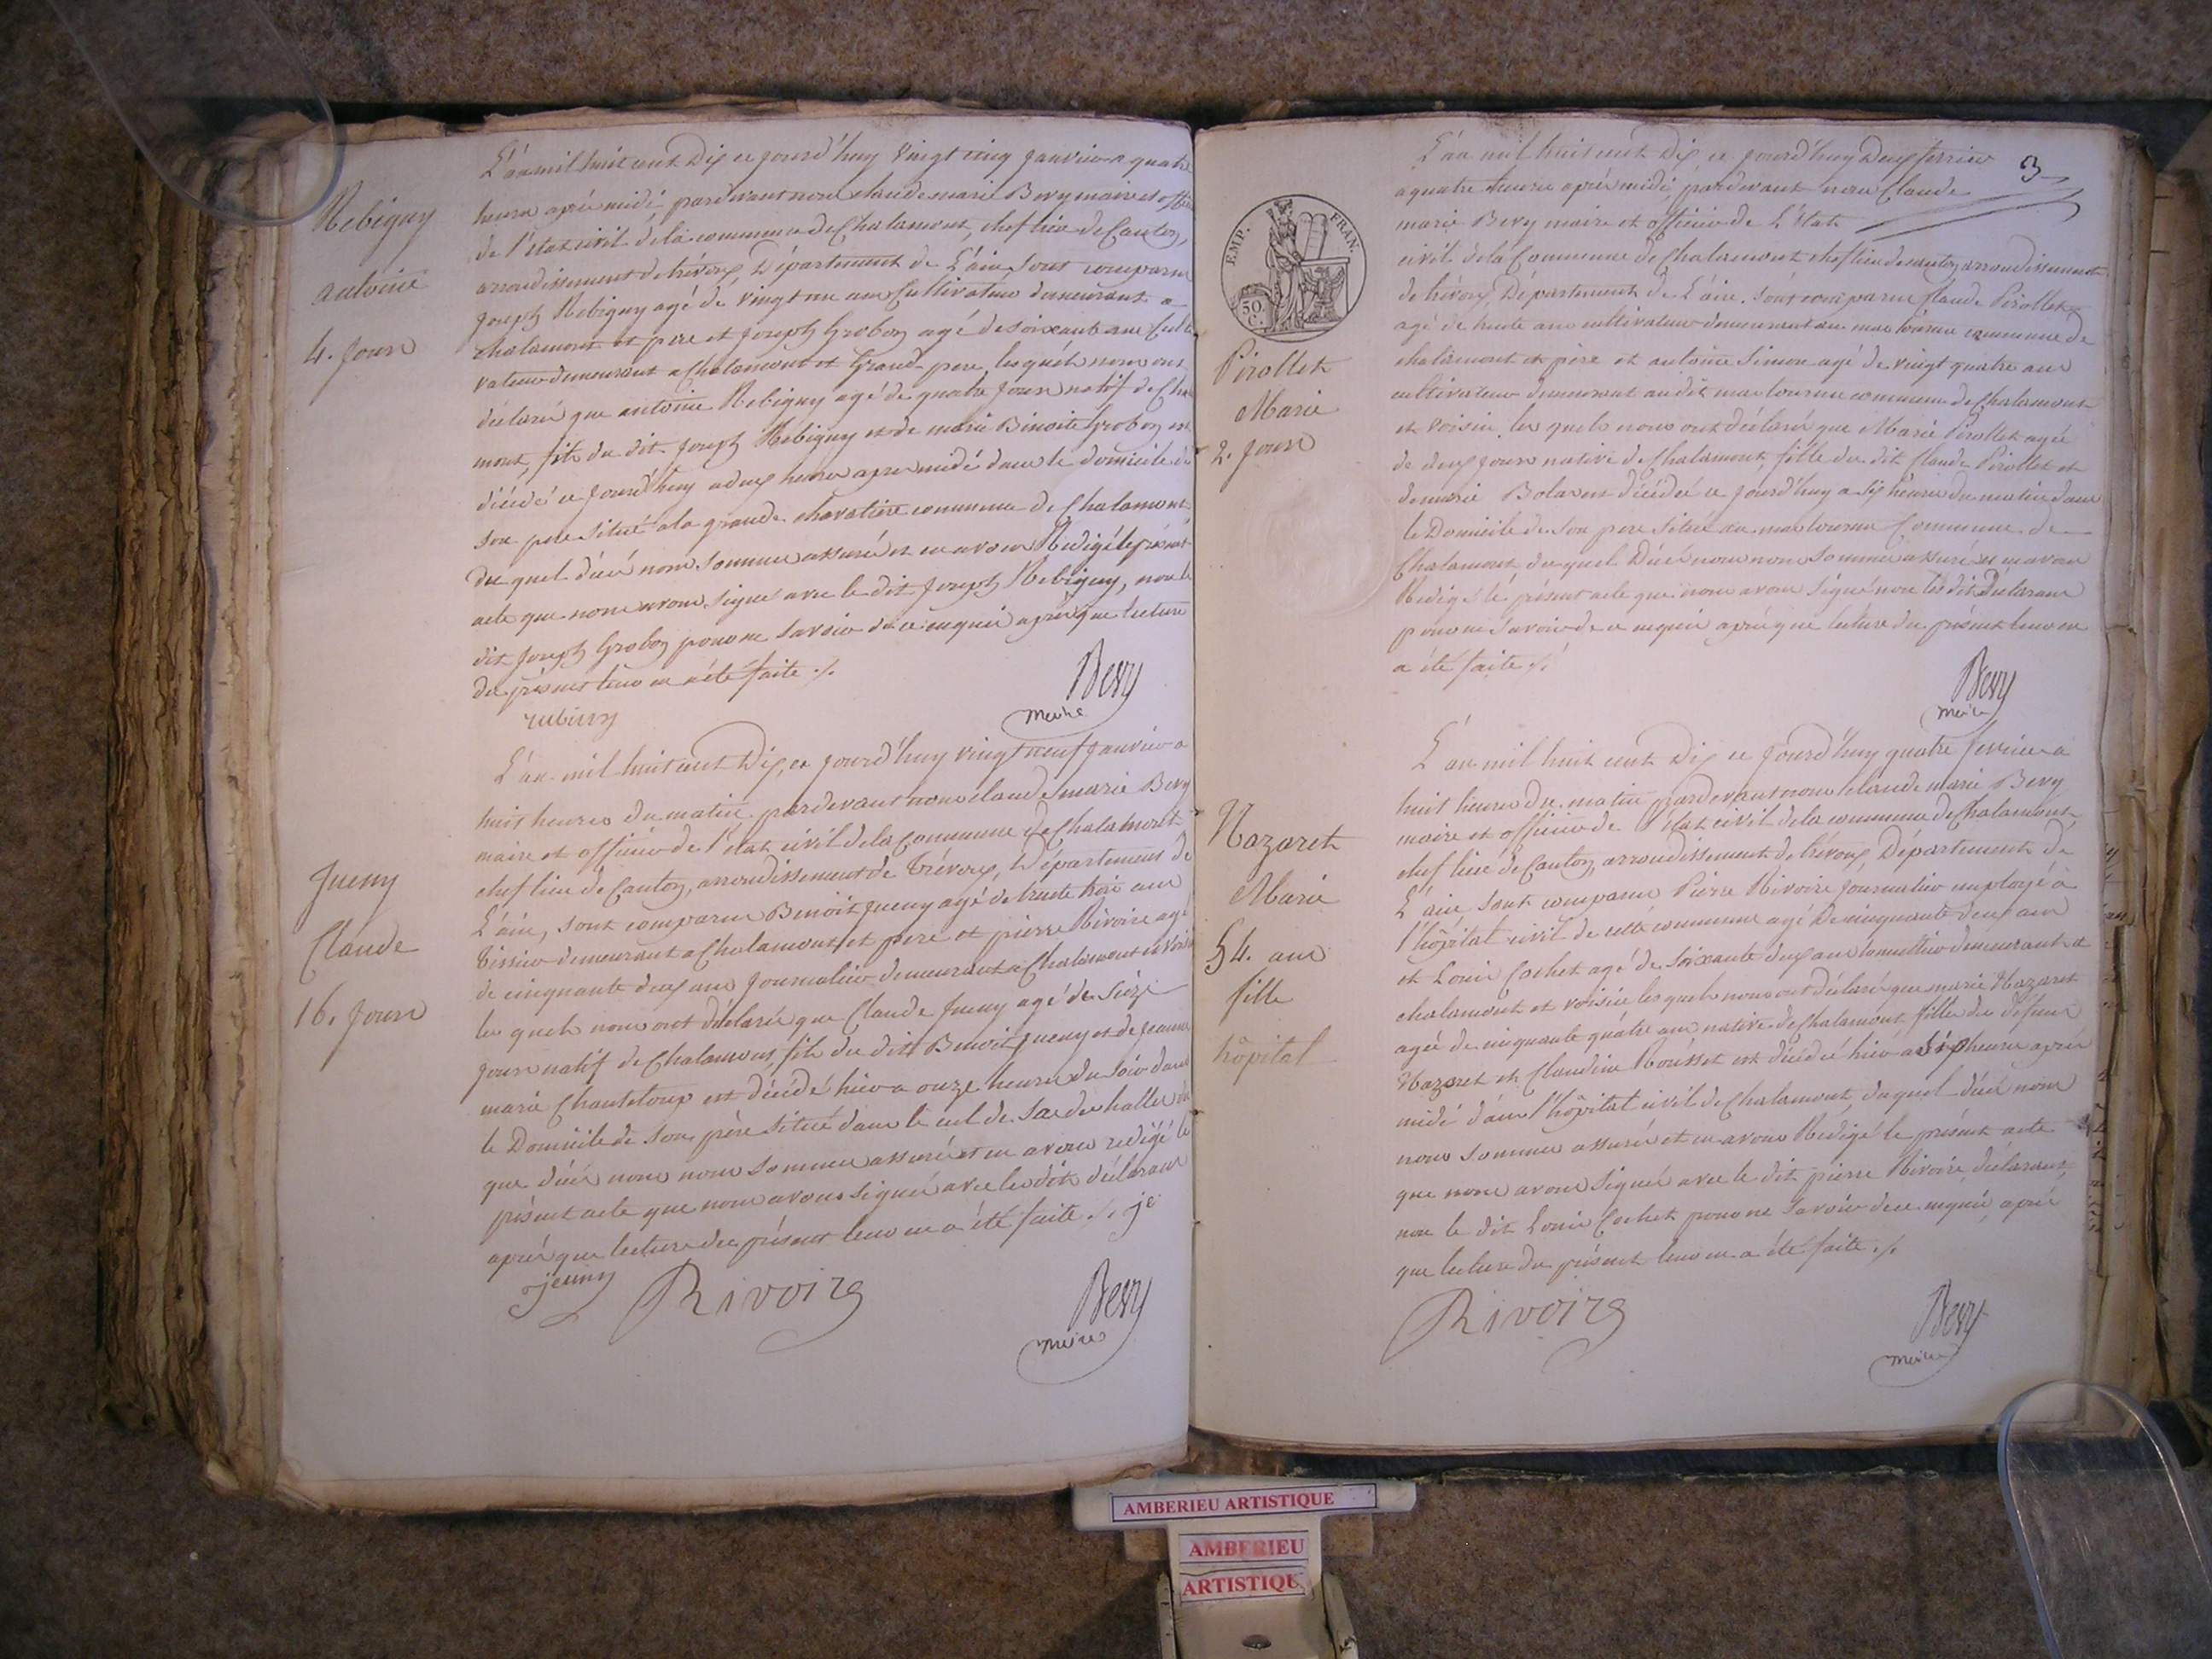 Rebiguy
antoine
4. Jours
L'an mil huit cent Dix ce jourd'huy vingt cinq Janvier a quatre
heures après midi pardevant nous claude marie Bevy maire et officier
de l'état civil de la commune de Chalamont, chef lieu de Canton,
arrondissement de trévoux, Département de L'ain, sont comparus
Joseph Rebiguy agé de vingt ans Cultivateur demeurant a
chalamont et pere et Joseph Grobon agé de soixante ans Culti
vateur demeurant a Chalamont et Grand-pere, lesquels nous ont
déclaré que antoine Rebiguy agé de quatre jours natif de Chala
mont, fils du dit Joseph Rebiguy et de marie Benoite Grobon est
décédé ce jourd'huy a deux heures apres midi dans le domicile de
son pere situé a la grande charatiere commune de Chalamont
du quel décés nous sommes assurés et en avons Redigé le présent
acte que nous avons signé avec le dit Joseph Rebiguy, non le
dit Joseph Grobon pour ne savoir de ce enquis après que lecture
du présent leur en a été faite ./.
Bevy
maire
Jueny
Claude
16. Jours
L'an mil huit cent Dix, ce jourd'huy vingt neuf Janvier a
huit heures du matin pardevant nous claude marie Bevy
maire et officier de l'état civil de la Commune de Chalamont
chef lieu de Canton, arrondissement de Trévoux, Département de
L'ain, sont comparus Benoit Jueny agé de trente trois ans
Tissier demeurant a Chalamont et pere et pierre Rivoire agé
de cinquante deux ans Journalier demeurant a Chalamont et voisin
les quels nous ont déclaré que Claude Jueny agé de Sieze
jours natif de Chalamont, fils du dit Benoit Jueny et de jeanne
marie Chanteloup est décédé hier a onze heures du soir dans
le Domicile de son père situé dans le cul de Sac des halles du
que décés nous nous sommes assurés et en avons redigé le
présent acte que nous avons signé avec les dits déclarans
après que lecture du présent leur en a été faite ./. je
jeuny
Rivoire
Bevy
maire
3
EMP. FRAN.
50 C.
Pirollet
Marie
2. jours
L'an mil huit cent Dix ce jourd'huy Deux ferrier
a quatre heures après midi, pardevant nous Claude
marie Bevy maire et officier de L'état
civil de la Commune de Chalamont chef lieu de canton arrondissement
de trévoux, Département de L'ain. sont comparus Claude Pirollet
agé de trente ans cultivateur demeurant au mas tournu commune de
chalamont et père et antoine Simon agé de vingt quatre ans
cultivateur demeurant au dit mas tournu commune de Chalamont
et voisin, les quels nous ont déclaré que Marie Pirollet agée
de deux jours native de Chalamont, fille du dit Claude Pirollet et
de marie Bolas est décédée ce jourd'huy a six heures du matin dans
le Domicile de son pere situé au mas tournu Commune de
Chalamont du quel Décés nous nous sommes assurés et en avons
Redigé le présent acte que nous avons signé non les dits Déclarans
pour ne savoir de ce enquis après que lecture du présent leur en
a été faite ./.
Bevy
maire
Nazaret
Marie
54. ans
fille
hôpital
L'an mil huit cent Dix ce jourd'huy quatre ferrier a
huit heures du matin pardevant nous claude marie Bevy
maire et officier de l'état civil de la commune de Chalamont,
chef lieu de Canton, arrondissement de trévoux, Département de
L'ain sont comparus Pierre Rivoire journalier employé a
l'hôpital civil de cette commune agé de cinquante deux ans
et Louis Cochet agé de soixante deux ans demeurant a
chalamont et voisin les quels nous ont déclaré que marie Nazaret
agée de cinquante quatre ans native de Chalamont, fille du défunt
Nazaret et Claudine Rousset est décédée hier a six heures après
midi dans l'hôpital civil de Chalamont, du quel décés nous
nous sommes assurés et en avons Redigé le présent acte
que nous avons signé avec le dit pierre Rivoire déclarant,
non le dit Louis Cochet pour ne savoir de ce enquis, après
que lecture du présent leur en a été faite ./.
Rivoire
Bevy
maire
AMBERIEU ARTISTIQUE
AMBERIEU
ARTISTIQUE